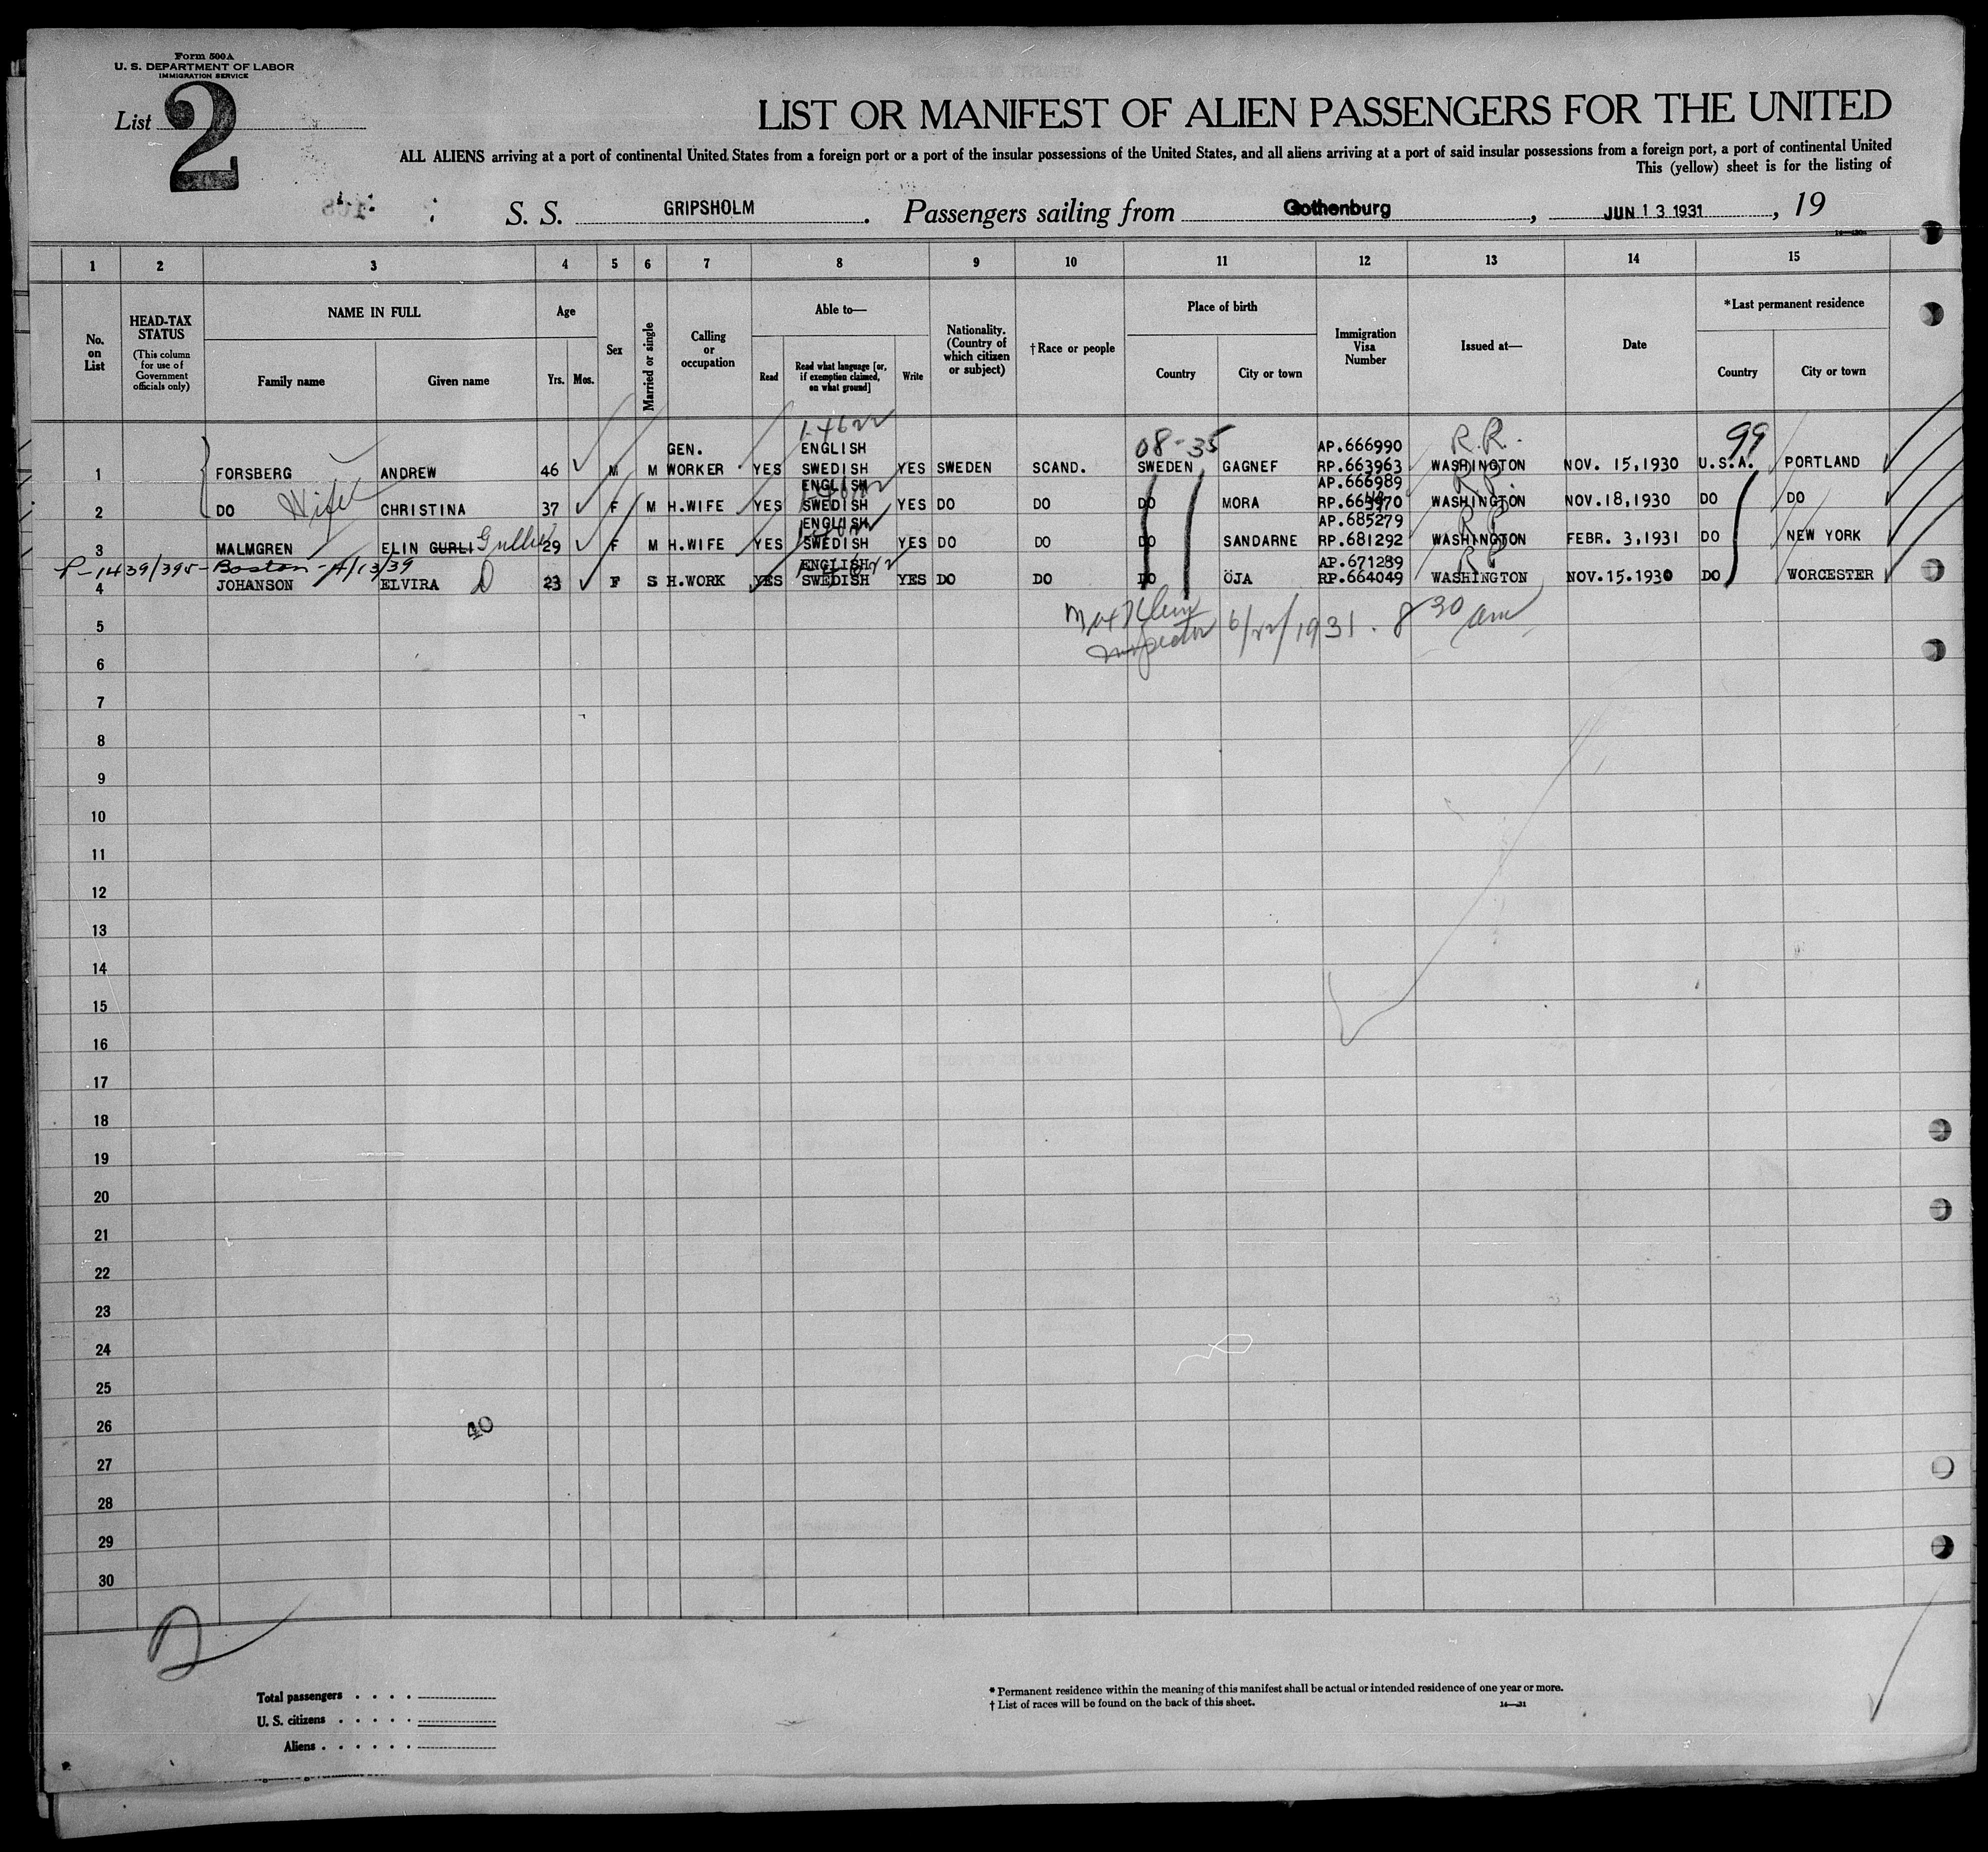 Form 500A
U. S. DEPARTMENT OF LABOR
IMMIGRATION SERVICE
List 2
LIST OR MANIFEST OF ALIEN PASSENGERS FOR THE UNITED
ALL ALIENS arriving at a port of continental United States from a foreign port or a port of the insular possessions of the United States, and all aliens arriving at a port of said insular possessions from a foreign port, a port of continental United
This (yellow) sheet is for the listing of
S. S. GRIPSHOLM. Passengers sailing from Gothenburg, JUN 13 1931, 19
1 2 3 4 5 6 7 8 9 10 11 12 13 14 15
No. on List
HEAD-TAX STATUS
(This column for use of Government officials only)
NAME IN FULL
Family name
Given name
Age
Yrs. Mos.
Sex
Married or single
Calling or occupation
Able to—
Read
Read what language [or, if exemption claimed, on what ground]
Write
Nationality. (Country of which citizen or subject)
† Race or people
Place of birth
Country
City or town
Immigration Visa Number
Issued at—
Date
*Last permanent residence
Country
City or town
1-4622
GEN. ENGLISH 08-35 AP.666990 R.R. 99
1 FORSBERG ANDREW 46 M M WORKER YES SWEDISH YES SWEDEN SCAND. SWEDEN GAGNEF RP.663963 WASHINGTON NOV. 15,1930 U.S.A. PORTLAND
ENGLISH AP.666989 R.P.
2 DO Wife CHRISTINA 37 F M H.WIFE YES SWEDISH YES DO DO DO MORA WASHINGTON NOV.18,1930 DO DO
ENGLISH AP.685279 R.P.
3 MALMGREN ELIN GURLI 29 F M H.WIFE YES SWEDISH YES DO DO DO SANDARNE RP.681292 WASHINGTON FEBR. 3,1931 DO NEW YORK
P-1439/395-Boston-4/13/39 ENGLISH AP.671289 R.P.
4 JOHANSON ELVIRA D 23 F S H.WORK YES SWEDISH YES DO DO DO ÖJA RP.664049 WASHINGTON NOV.15.1930 DO WORCESTER
Inspector 6/22/1931. 8 30 am
5
6
7
8
9
10
11
12
13
14
15
16
17
18
19
20
21
22
23
24
25
26 40
27
28
29
30
Total passengers . . . .
U. S. citizens . . . . .
Aliens . . . . . .
* Permanent residence within the meaning of this manifest shall be actual or intended residence of one year or more.
† List of races will be found on the back of this sheet.
14—31